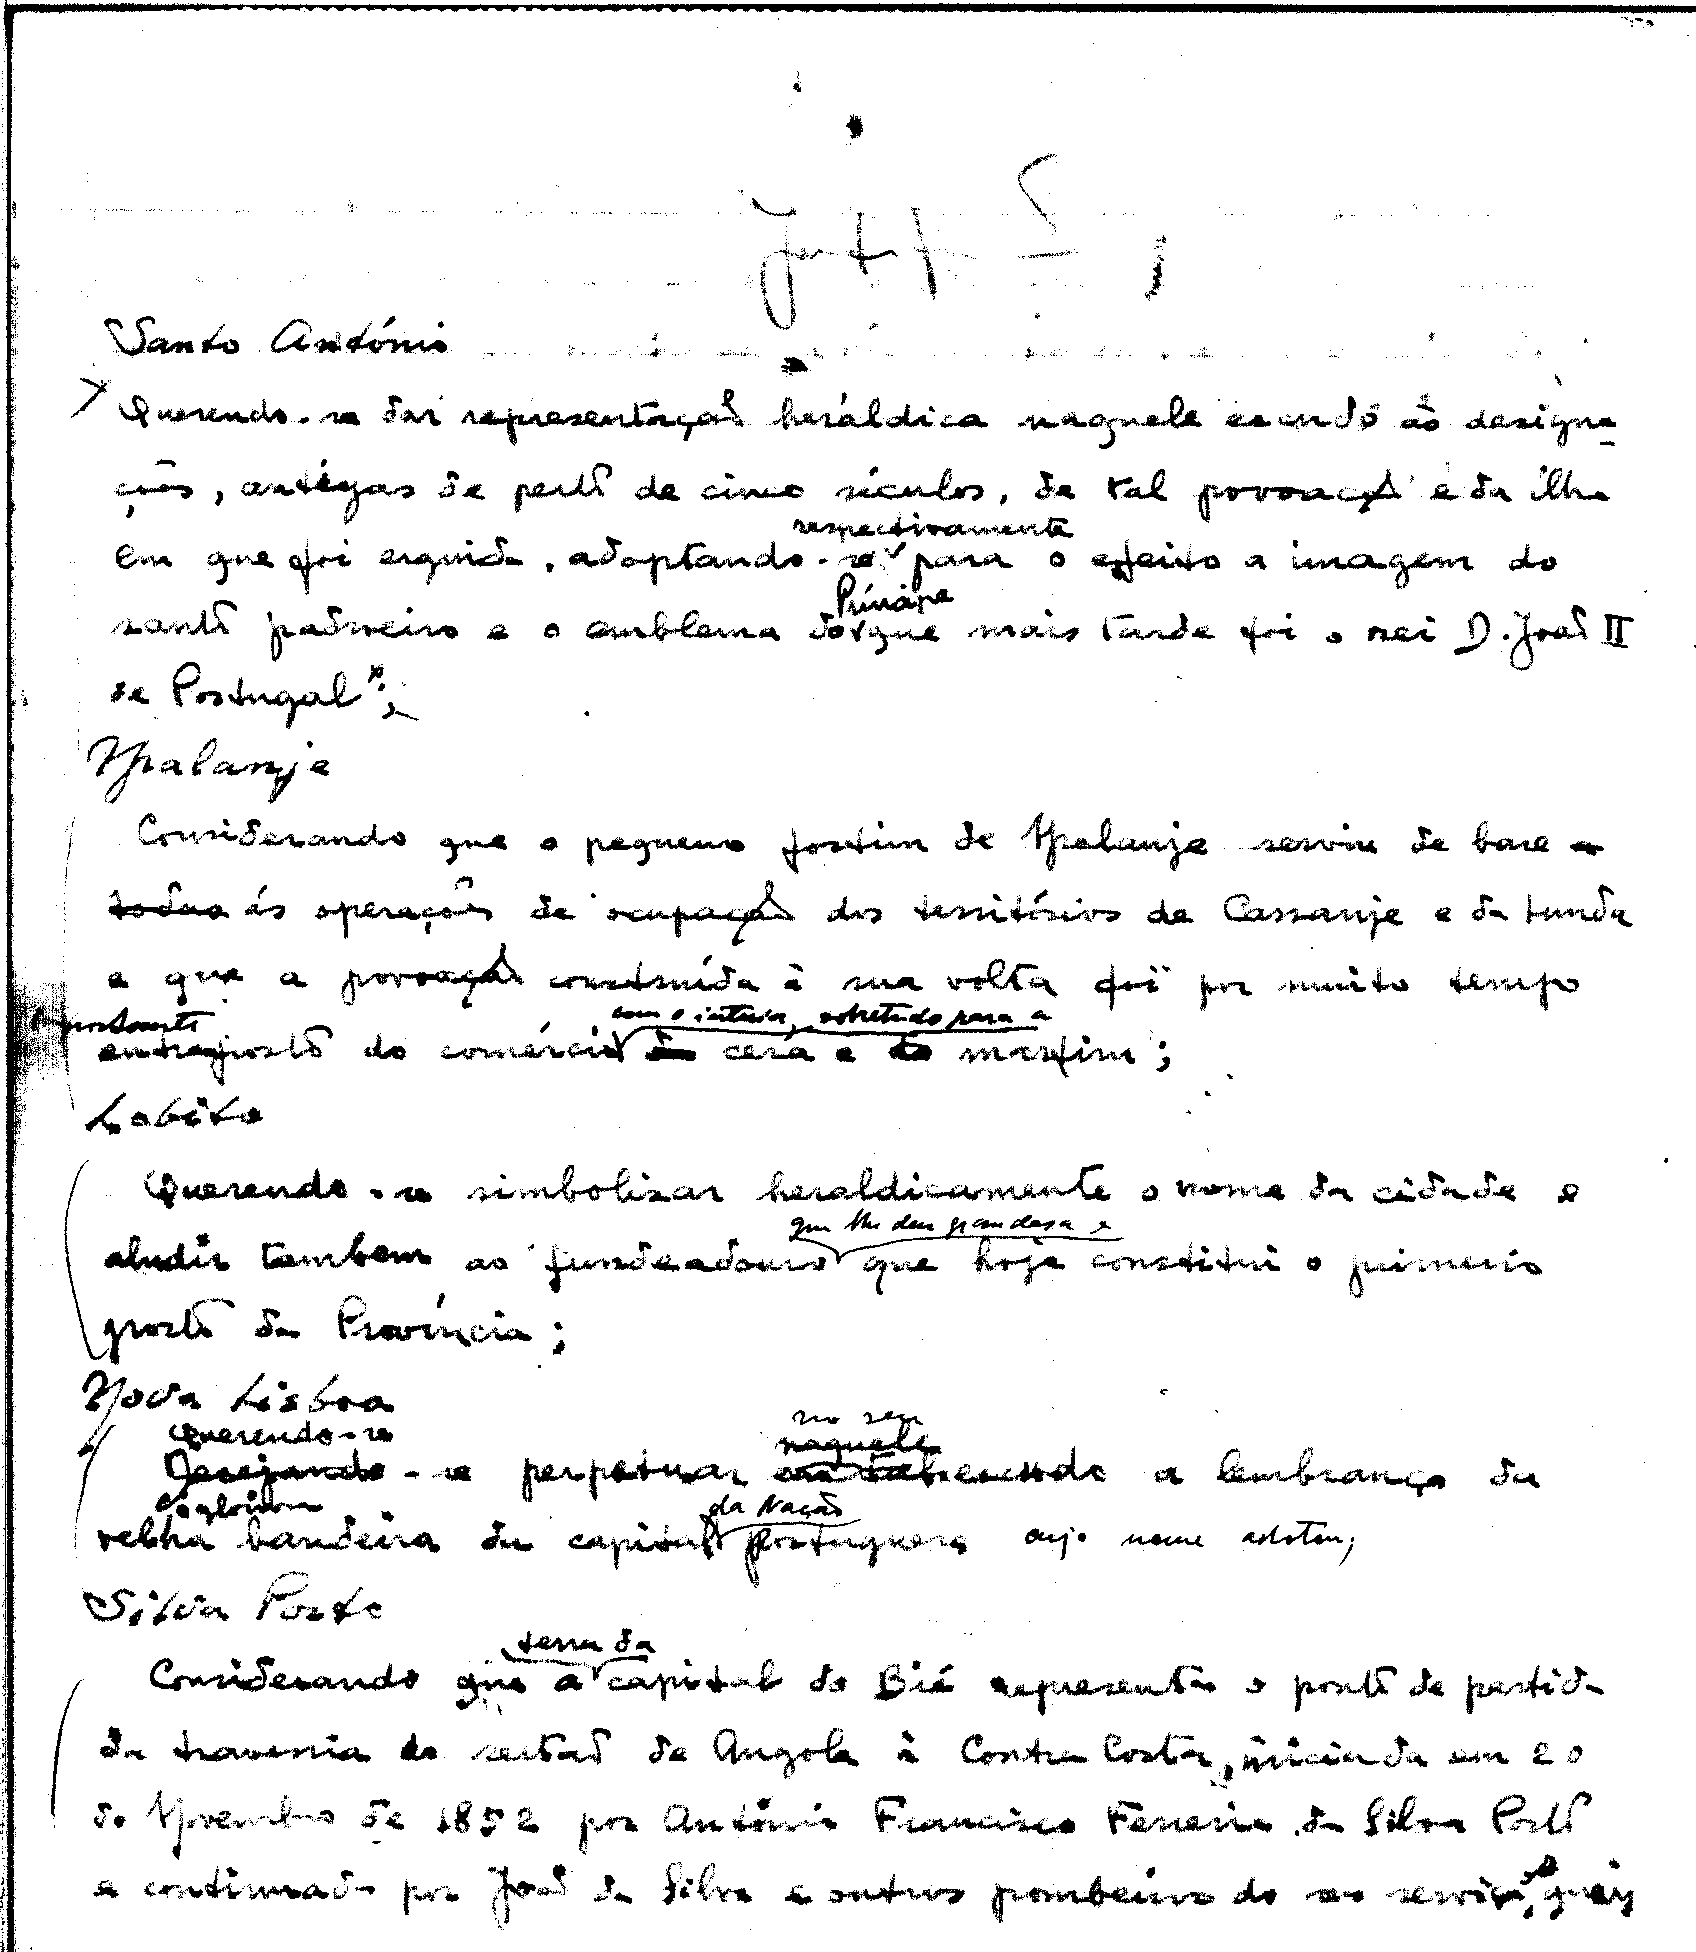 Santo António
Querendo-se dar representação heráldica naquele escudo às designa-
ções, antigas de perto de cinco séculos, da tal povoação e da ilha
respectivamente
em que foi erguida, adoptando-se para o efeito a imagem do
Príncipe
santo padroeiro e o emblema do que mais tarde foi o rei D. João II
de Portugal";
Malanje
Considerando que o pequeno fortim de Malanje serviu de base a
todas ás operações de ocupação dos territórios de Cassanje e da Lunda
e que a povoação construída à sua volta foi por muito tempo
importante com o interior, sobretudo para a
entreposto do comércio da cera e do marfim;
Lobito
Querendo-se simbolizar heraldicamente o nome da cidade e
que lhe deu grandesa e
aludir tambem ao fundeadouro que hoje constitui o primeiro
porto da Província;
Nova Lisboa
Querendo-se no seu
naquele
Desejando-se perpetuar escudo a lembrança da
e gloriosa da Nação
velha bandeira da capital portuguesa cujo nome adotou;
Silva Porto
terra da
Considerando que a capital do Bié representa o ponto de partida
da travessia do sertão de Angola à Contra Costa, iniciada em 20
de Novembro de 1852 por António Francisco Ferreira da Silva Porto
e continuada por João da Silva e outros pombeiros do seu serviço,